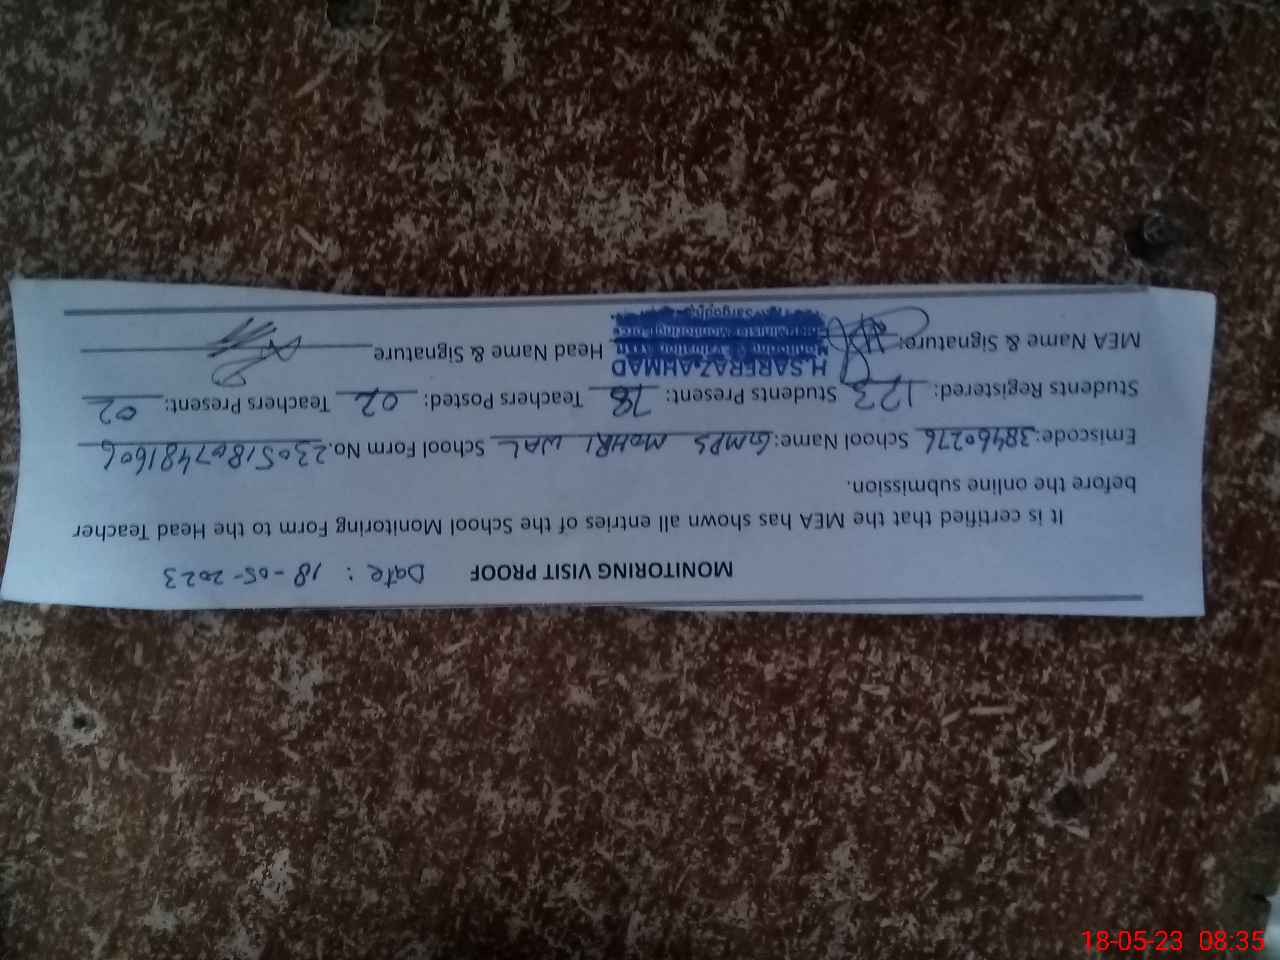 MONITORING VISIT PROOF Date : 18-05-2023
It is certified that the MEA has shown all entries of the School Monitoring Form to the Head Teacher
before the online submission.
Emiscode: 38460276 School Name: GMPS MOHRI WAL School Form No. 23051807481606
Students Registered: 123 Students Present: 78 Teachers Posted: 02 Teachers Present: 02
MEA Name & Signature: H.SARFRAZ AHMAD Head Name & Signature
Monitoring & Evaluation
Sargodha
18-05-23 08:35